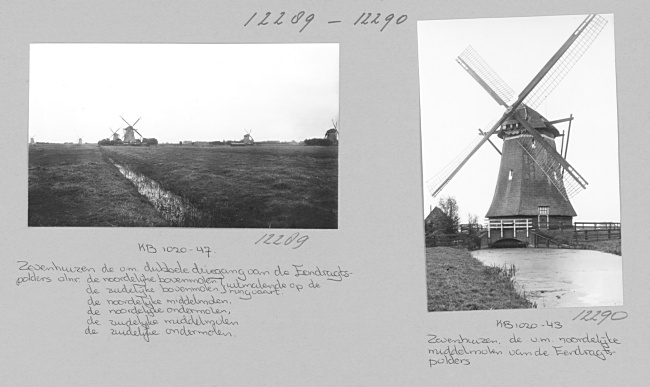 12289 - 12290
KB 1020-47.
12289
Zevenhuizen de v.m. dubbele driegang van de Eendragts-
polders v.l.n.r. de noordelijke bovenmolen, uitmalende op de
de zuidelijke bovenmolen ringvaart.
de noordelijke middelmolen,
de noordelijke ondermolen,
de zuidelijke middelmolen
de zuidelijke ondermolen.
KB 1020-43
12290
Zevenhuizen, de v.m. noordelijke
middelmolen van de Eendragts-
polders